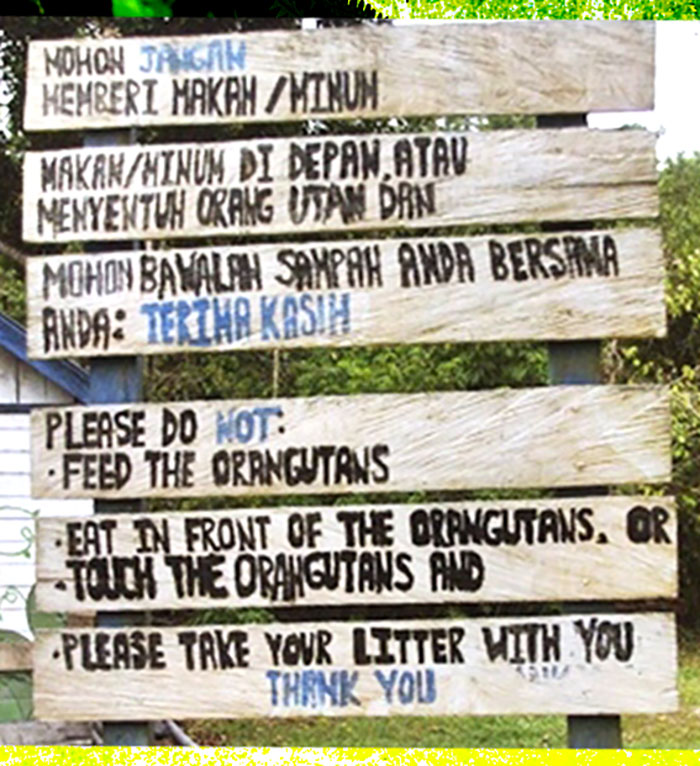 MOHON JANGAN
MEMBERI MAKAN / MINUM
MAKAN/MINUM DI DEPAN, ATAU
MENYENTUH ORANG UTAN DAN
MOHON BAWALAH SAMPAH ANDA BERSAMA
ANDA: TERIMA KASIH
PLEASE DO NOT:
·FEED THE ORANGUTANS
·EAT IN FRONT OF THE ORANGUTANS. OR
·TOUCH THE ORANGUTANS AND
·PLEASE TAKE YOUR LITTER WITH YOU
THANK YOU